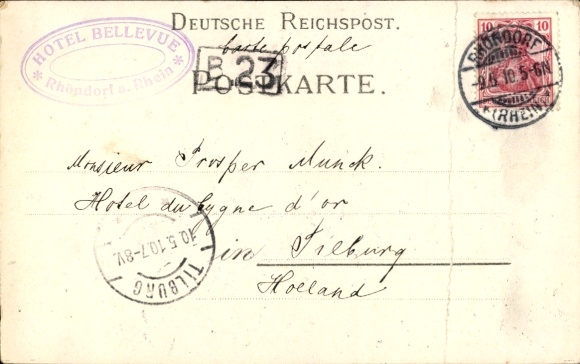 DEUTSCHE REICHSPOST.
Carte postale
HOTEL BELLEVUE
* Rhöndorf a. Rhein *
B 23
POSTKARTE.
10 10
RHÖNDORF
-9.5.10.5-6N
*(RHEIN)
Monsieur Prosper Munck.
Hotel du Cygne d'or
in Tilburg
Holland
10.5.10.7-8V.
TILBURG